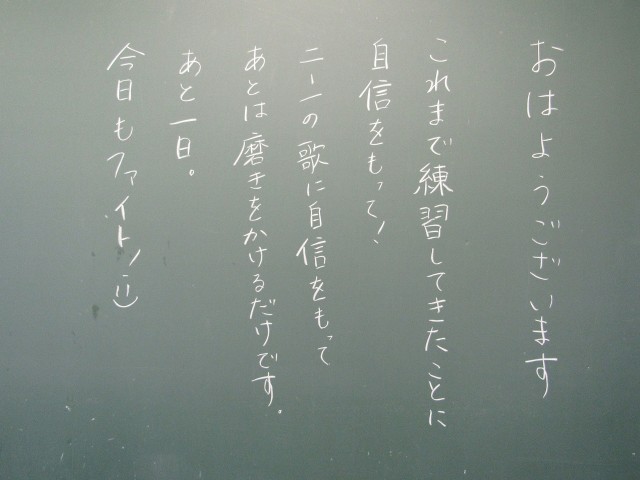 おはようございます
これまで練習してきたことに
自信をもって!
二ー一の歌に自信をもって
あとは磨きをかけるだけです。
あと一日。
今日もファイト! :)